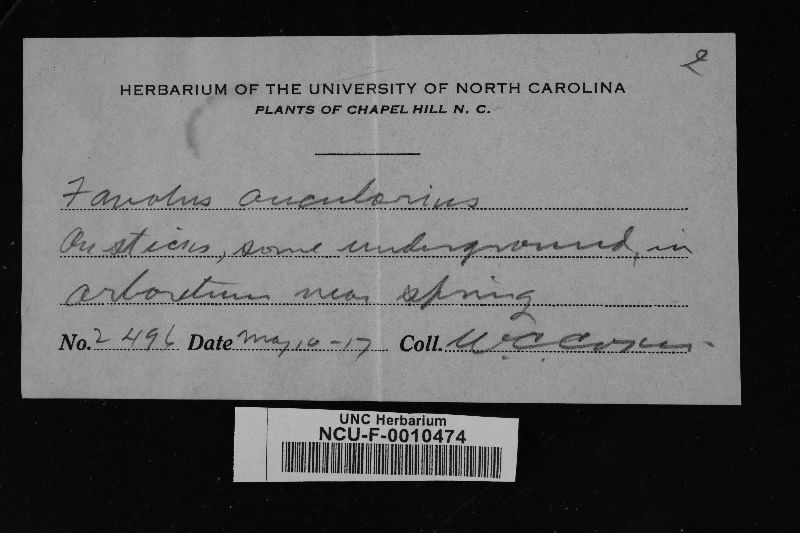 2
HERBARIUM OF THE UNIVERSITY OF NORTH CAROLINA
PLANTS OF CHAPEL HILL N. C.
Favolus arcularius
On sticks, some underground, in
arboretum near spring
No. 2496 Date May 10-17 Coll. W.C. Coker-
UNC Herbarium
NCU-F-0010474